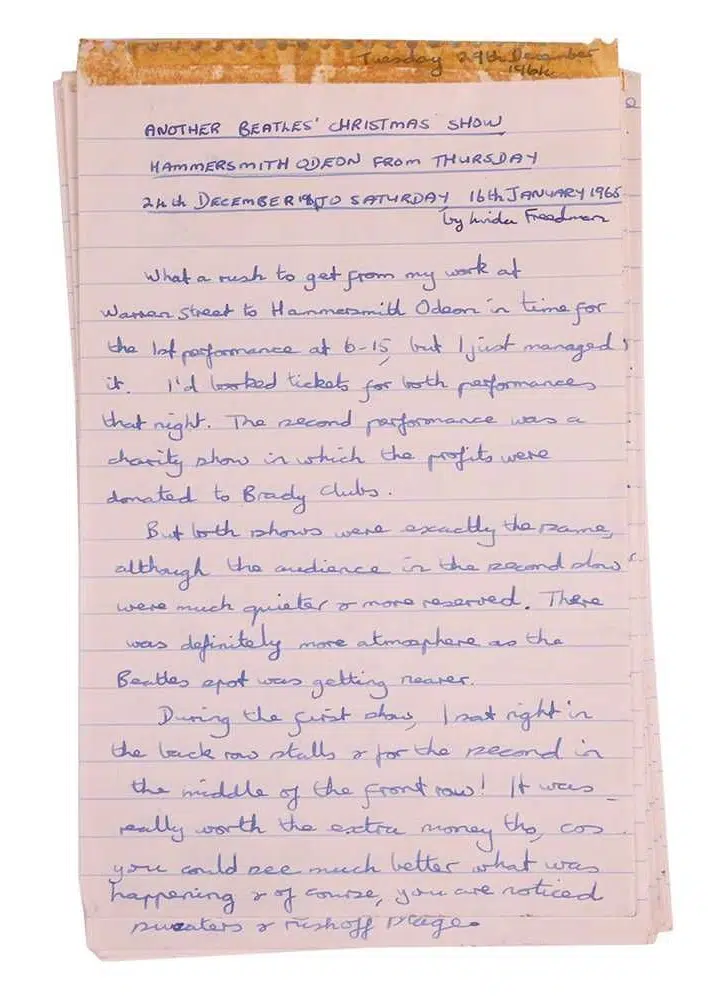 Tuesday 29th December
1964
ANOTHER BEATLES' CHRISTMAS SHOW
HAMMERSMITH ODEON FROM THURSDAY
24th DECEMBER TO SATURDAY 16th JANUARY 1965
by Linda Freedman
What a rush to get from my work at
Warren Street to Hammersmith Odeon in time for
the 1st performance at 6-15, but I just managed
it. I'd booked tickets for both performances
that night. The second performance was a
charity show in which the profits were
donated to Brady Clubs.
But both shows were exactly the same,
although the audience in the second show
were much quieter & more reserved. There
was definitely more atmosphere as the
Beatles spot was getting nearer.
During the first show, I sat right in
the back row stalls & for the second in
the middle of the front row! It was
really worth the extra money tho, cos
you could see much better what was
happening & of course, you are noticed
sweaters & rush off stage.